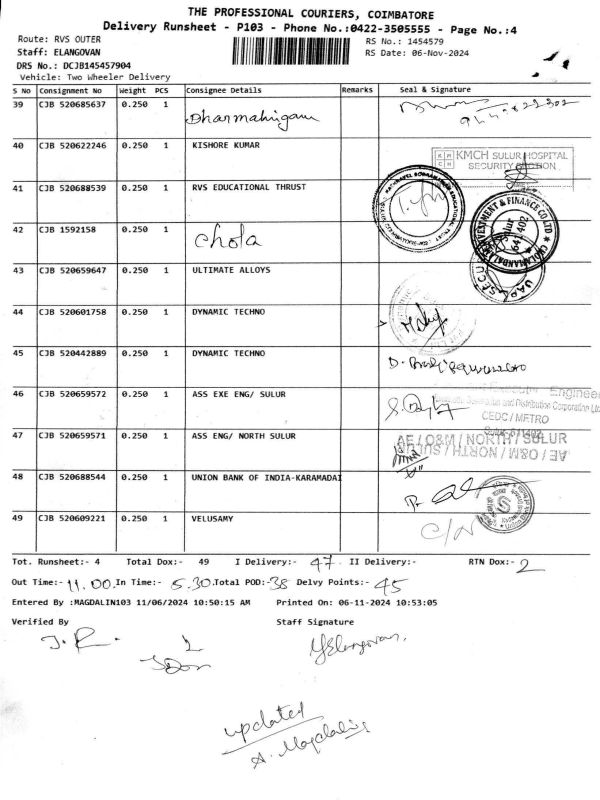 THE PROFESSIONAL COURIERS, COIMBATORE
Delivery Runsheet - P103 - Phone No.:0422-3505555 - Page No.:4
Route: RVS OUTER RS No.: 1454579
Staff: ELANGOVAN RS Date: 06-Nov-2024
DRS No.: DCJB145457904
Vehicle: Two Wheeler Delivery
S No Consignment No Weight PCS Consignee Details Remarks Seal & Signature
39 CJB 520685637 0.250 1 Dharmalingam
40 CJB 520622246 0.250 1 KISHORE KUMAR
KMCH SULUR HOSPITAL
SECURITY SECTION
41 CJB 520688539 0.250 1 RVS EDUCATIONAL THRUST
42 CJB 1592158 0.250 1 Chola
Sulur
641 402
43 CJB 520659647 0.250 1 ULTIMATE ALLOYS
44 CJB 520601758 0.250 1 DYNAMIC TECHNO
45 CJB 520442889 0.250 1 DYNAMIC TECHNO
46 CJB 520659572 0.250 1 ASS EXE ENG/ SULUR
Engineer
Generation and Distribution Corporation Ltd
CEDC / METRO
47 CJB 520659571 0.250 1 ASS ENG/ NORTH SULUR
AE / O&M / NORTH / SULUR
AE / O&M / NORTH / SULUR
48 CJB 520688544 0.250 1 UNION BANK OF INDIA-KARAMADAI
49 CJB 520609221 0.250 1 VELUSAMY
Tot. Runsheet:- 4 Total Dox:- 49 I Delivery:- 47 II Delivery:- RTN Dox:- 2
Out Time:- 11.00 In Time:- 5.30 Total POD:- 38 Delvy Points:- 45
Entered By :MAGDALIN103 11/06/2024 10:50:15 AM Printed On: 06-11-2024 10:53:05
Verified By Staff Signature
Elangovan
updated
A. Magdalin